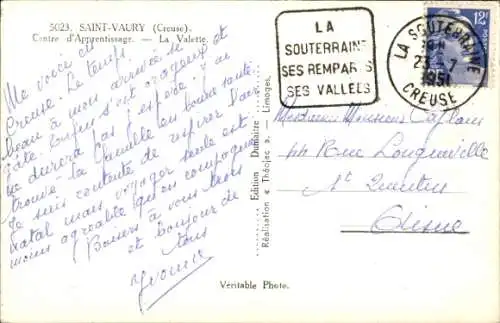 5023. SAINT-VAURY (Creuse).
Centre d'Apprentissage. — La Valette.
Me voici en
Creuse. Le temps
beau à mon arrivée se
gâte. Temps orageux et
ne durera pas j'espère. J'ai
trouvé la famille en bonne santé.
Je suis contente de respirer l'air
natal mais voyager seule est
moins agréable qu'en compagnie
Baisers à vous trois
et bonjour de
tous
Yvonne
Edition Dumaître - Limoges.
Réalisation « Théojac ».
LA
SOUTERRAINE
SES REMPARTS
SES VALLEES
LA SOUTERRAINE
23 - 7
1951
CREUSE
12F
Madame Monsieur
44 Rue Longueville
St Quentin
Aisne
Véritable Photo.